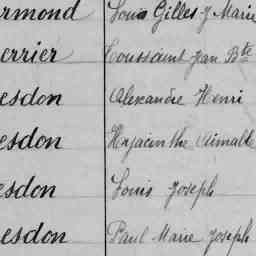 rmond Louis Gilles J Marie
errier Toussaint Jean Bte
esdon Alexandre Henri
esdon Hyacinthe Aimable
esdon Louis Joseph
esdon Paul Marie Joseph